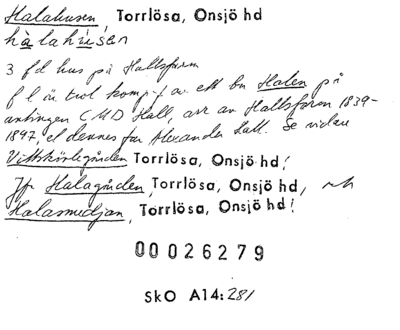 Halahusen, Torrlösa, Onsjö hd
hàlahúsen
3 fd hus på Hallsfarm
f l är trol komp-f av ett bn Halen på
antingen CMD Hall, arr av Hallsfarm 1839-
1847, el dennes far Alexander Hall. Se vidare
Vittskövlegården Torrlösa, Onsjö hd!
Jfr Halagården, Torrlösa, Onsjö hd, och
Halasmedjan, Torrlösa, Onsjö hd!
00026279
SkO A14:281